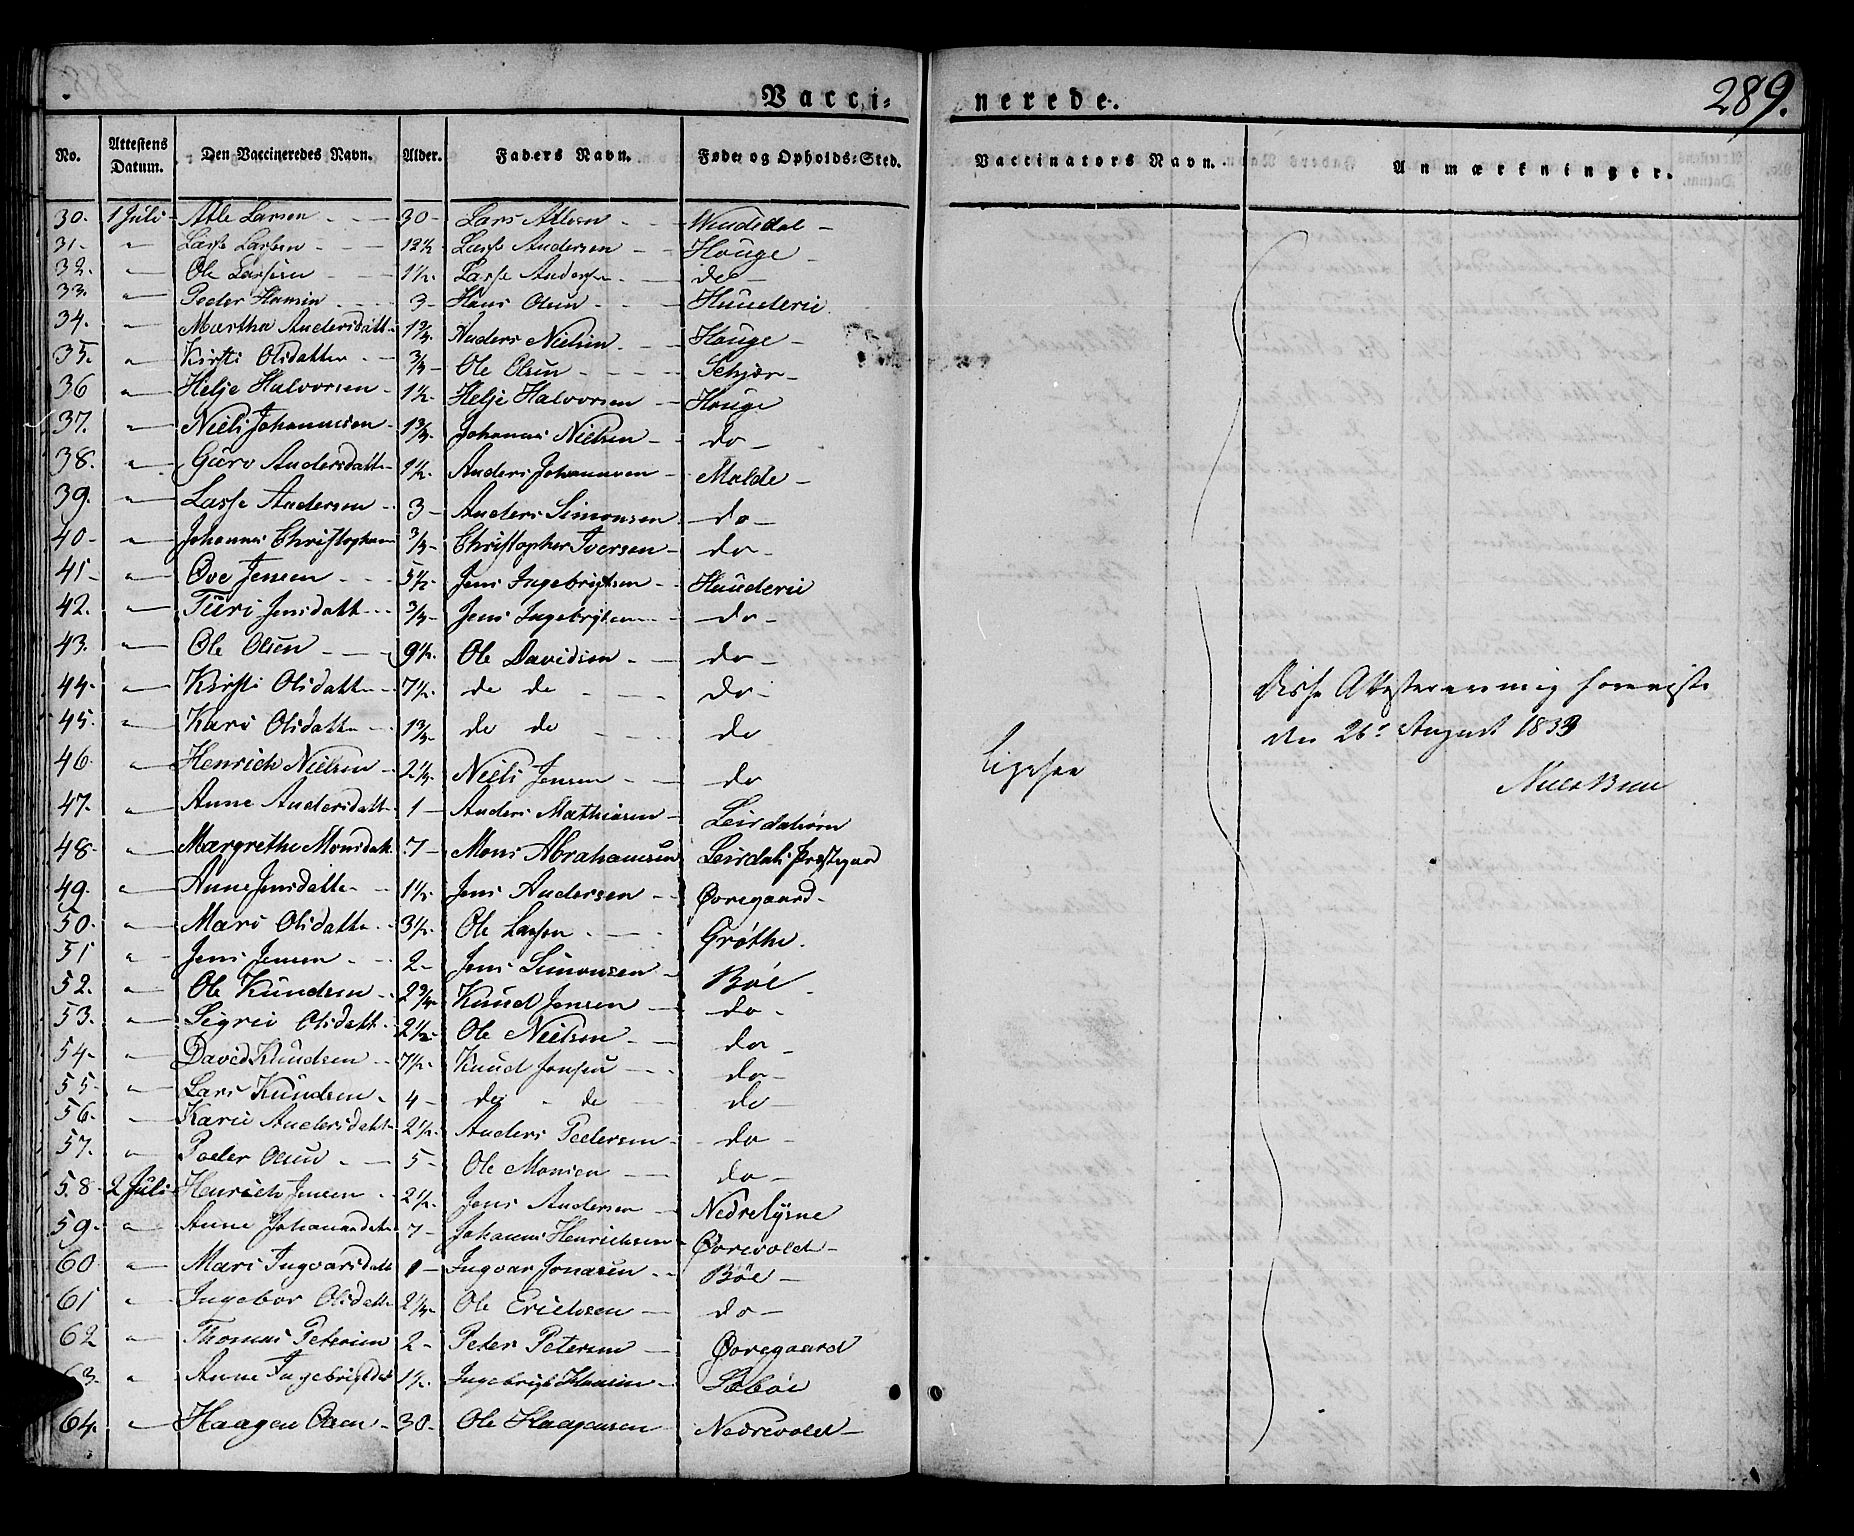 289.
Vaccinerede.
No. Attestens Datum. Den Vaccineredes Navn. Alder. Faders Navn. Føde- og Opholds-Sted. Vaccinators Navn. Anmærkninger.
30. 1 Juli Atle Larsen 30 Lars Atlesen Wendedal
31 " Lasse Lassen 12½ Lasse Andersen Houge
32. " Ole Lassen 1½ Lasse Andersen do
33. " Peder Hansen 3 Hans Olsen Hunderie
34. " Martha Andersdatt Anders Nielsen Houge
35. " Kirsti Olsdatter ¾ Ole Olsen Schjær
36 " Helje Halvorsen 1½ Helje Halvorsen Houge
37. " Niels Johannesen 1¾ Johannes Nielsen do
38. " Guro Andersdatt 1½ Anders Johannesen Molde
39. " Lasse Andersen 3 Anders Simonsen do
40 " Johannes Christophersen ¾ Christopher Iversen do
41 " Ove Jensen 5½ Jens Ingebrigtsen Hunderie
42. " Turi Jensdatt ¾ Jens Ingebrigtsen do
43. " Ole Olsen 9½ Ole Davidsen do
44 " Kirsti Olsdatt 7½ do do do
45. " Kari Olsdatt 1¾ do do do
46 " Henrich Nielsen 2¼ Niels Jensen do
47. " Anne Andersdatt 1 Anders Mathiasen Leirdalsørn
48 " Margrethe Monsdatt 7 Mons Abrahamsen Leirdals Præstegaard
49. " Anne Jensdatte 1½ Jens Andersen Øvregaard
50. " Mari Olsdatt 3½ Ole Lassen Grøthe
51 " Jens Jensen 2 Jens Simonsen Böe
52. " Ole Knudsen 2¾ Knud Jensen do
53. " Sigrei Olsdatt 2½ Ole Nielsen do
54 " David Knudsen 7½ Knud Jensen do
55 " Lars Knudsen 4 do do do
56. " Kari Andersdatt 2½ Anders Pedersen do
57. " Peder Olsen 5 Ole Monsen do
58 2 Juli Henrich Jensen 2½ Jens Andersen Nedrelysne
59. " Anne Johannesdatt 7 Johannes Henrichsen Øvrevold
60 " Mari Ingvarsdatt 1 Ingvar Jonasen Böe
61 " Ingebor Olsdatt 2¼ Ole Erichsen do
62 " Thomas Petersen 2 Peter Petersen Øvregaard
63. " Anne Ingebrigtsdat 1½ Ingebrigt Hansen Sæbøe
64. " Haagen Olsen 30 Ole Haagensen Nedrevold
Ligesaa
disse Attester ere mig foreviste
den 26de August 1839
Niels Bruu